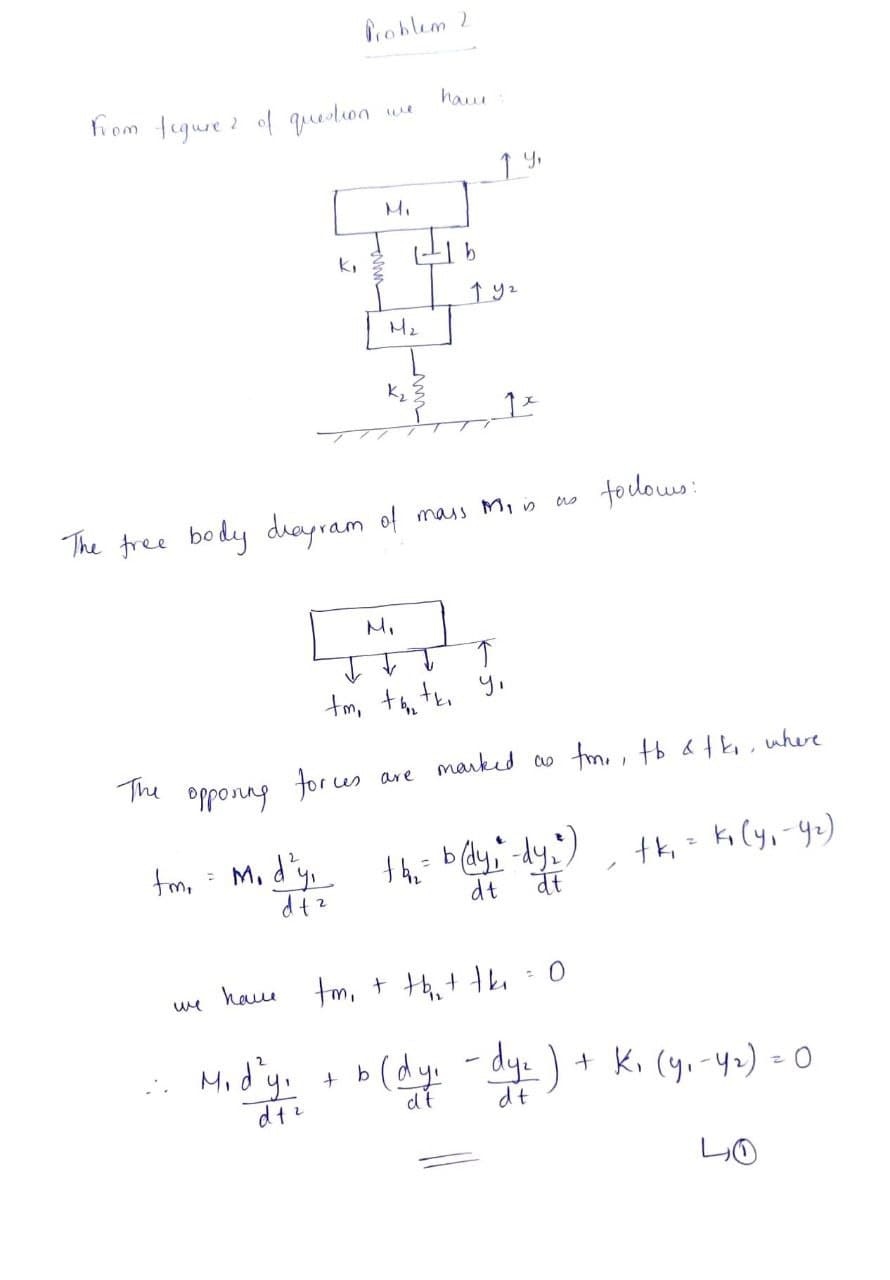 Problem 2
From figure 2 of question we have:
↑ y₁
M₁
K₁
b
↑ y₂
M₂
K₂
↑ x
The free body diagram of mass M₁ is as follows:
M₁
fm₁ fb₁₂ fk₁ y₁
The opposing forces are marked as fm₁, fb & fk₁, where
fm₁ = M₁ d²y₁/dt² fb₁₂ = b(dy₁/dt - dy₂/dt), fk₁ = K₁(y₁-y₂)
we have fm₁ + fb₁₂ + fk₁ = 0
∴ M₁ d²y₁/dt² + b(dy₁/dt - dy₂/dt) + K₁(y₁-y₂) = 0
↳①